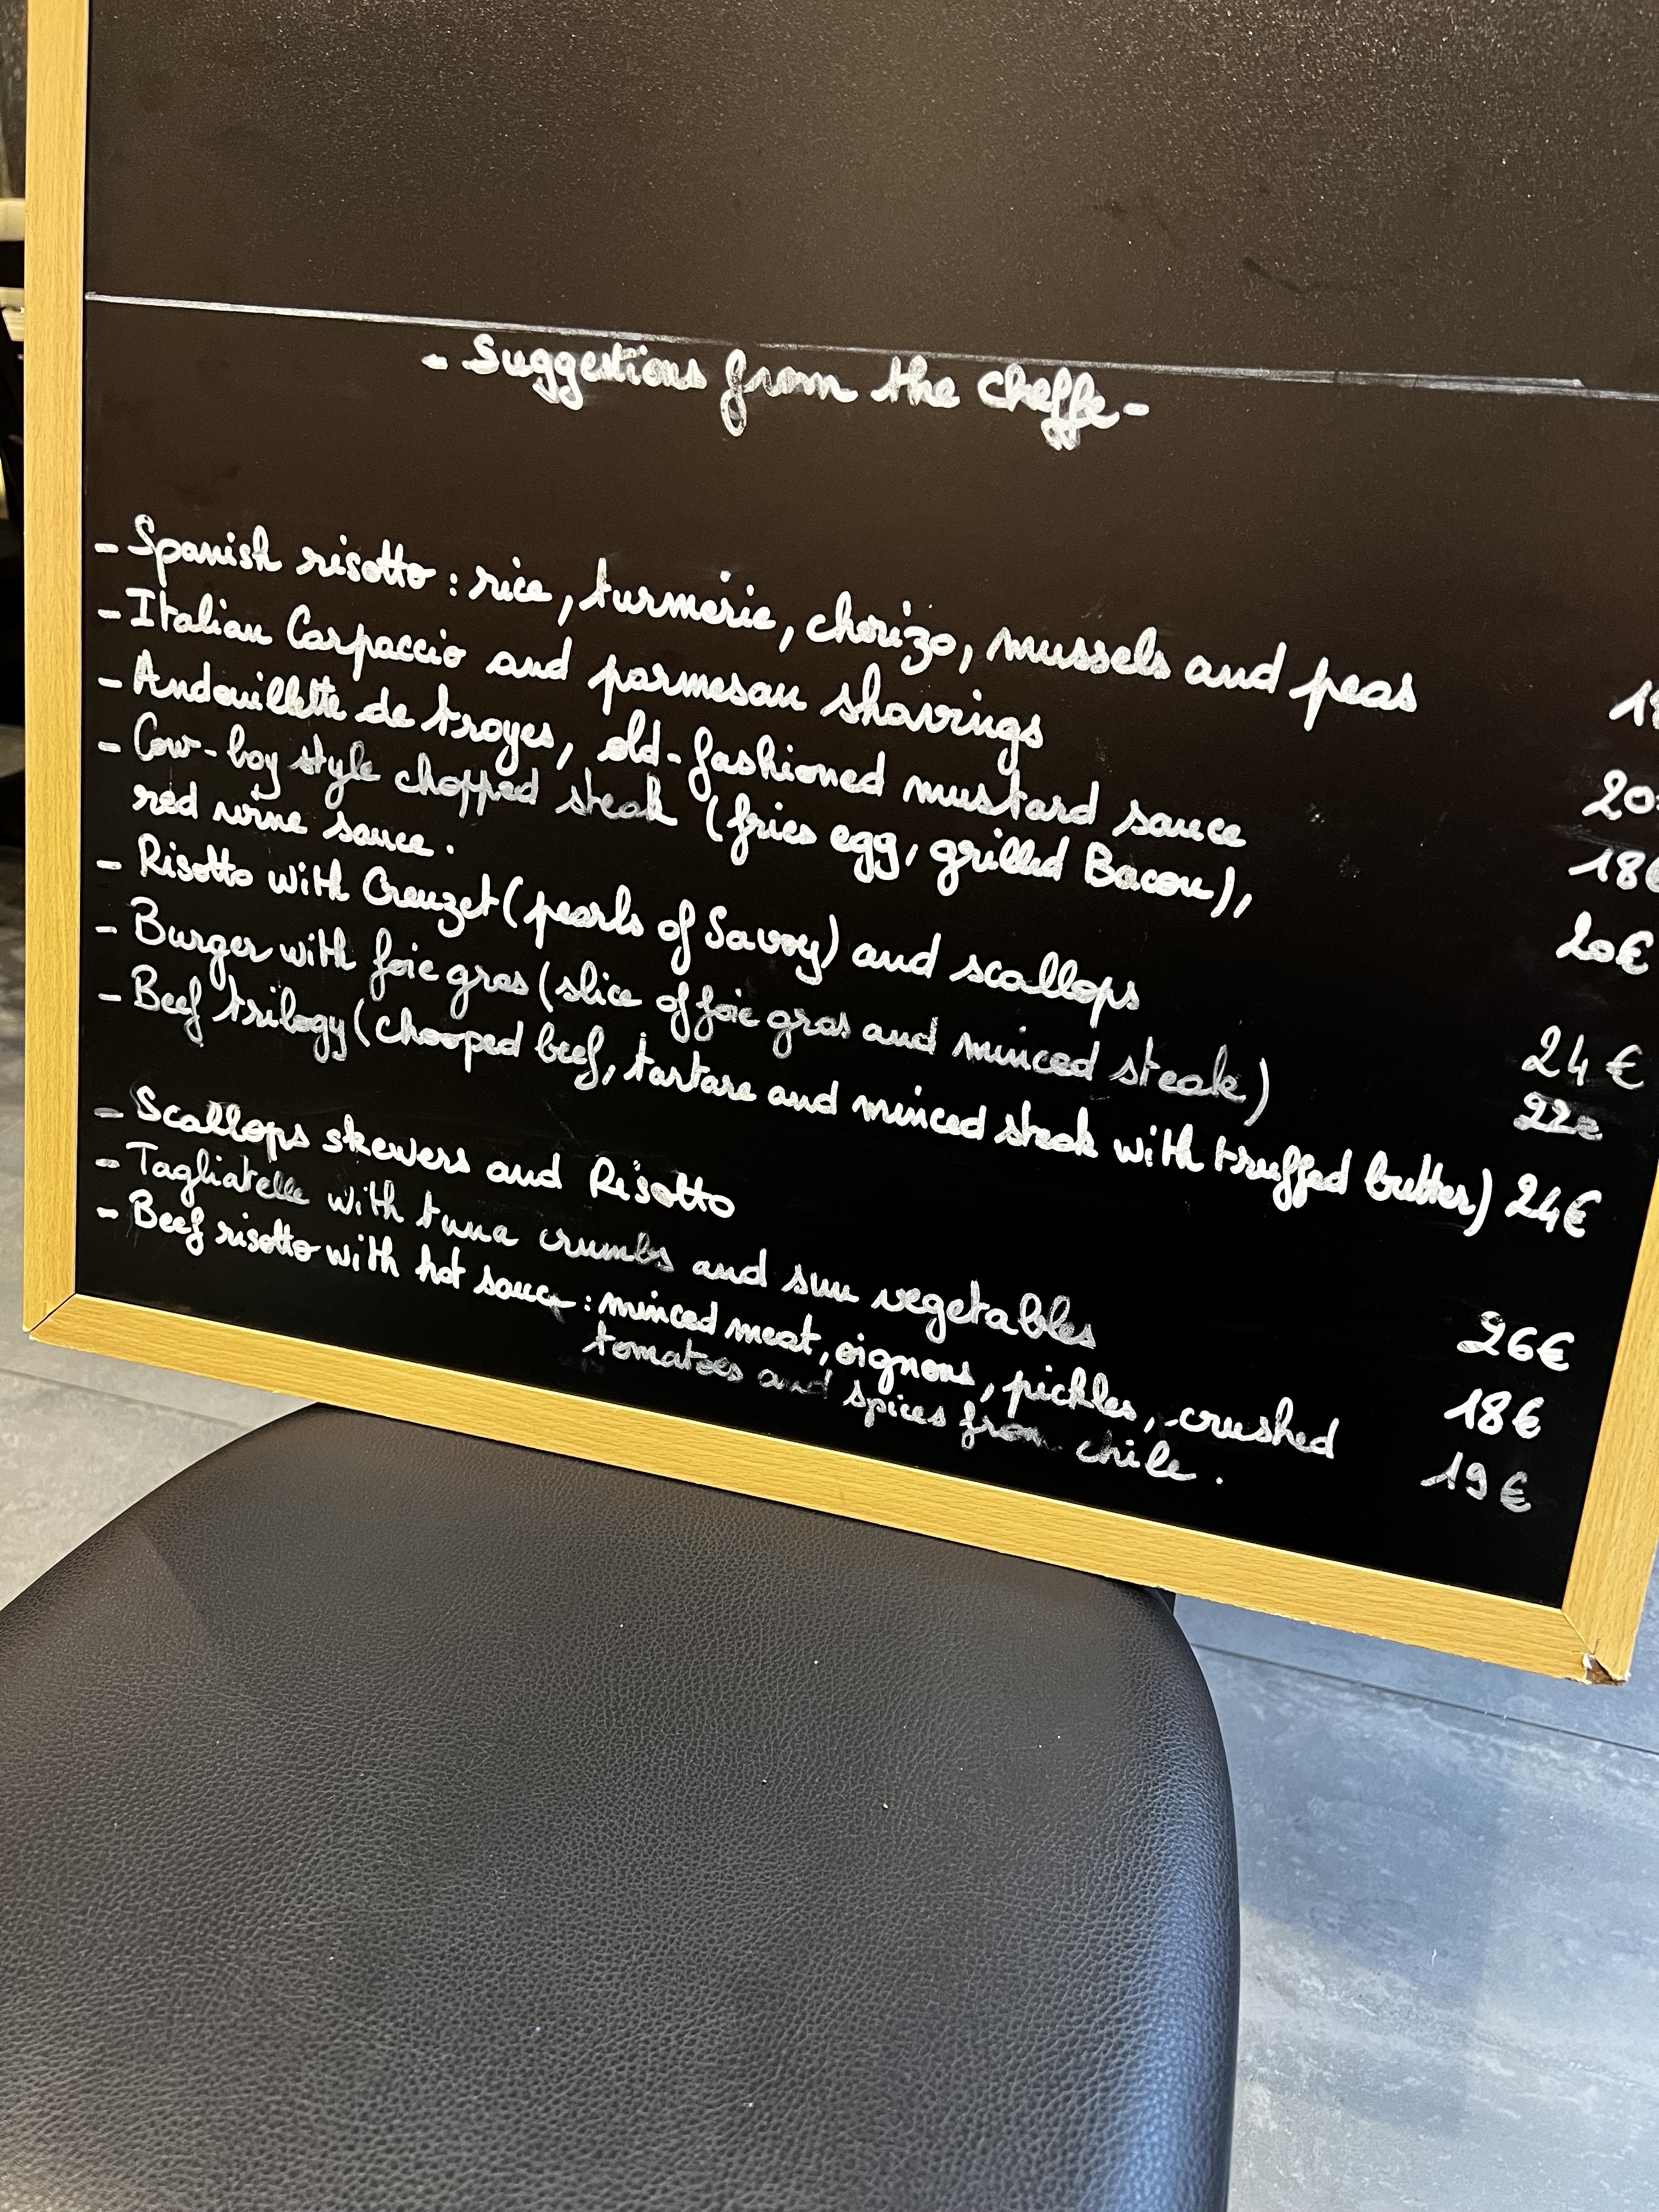 - Suggestions from the cheffe -
- Spanish risotto : rice, turmeric, chorizo, mussels and peas
- Italian Carpaccio and parmesan shavings 20
- Andouillette de troyes, old-fashioned mustard sauce 18€
- Cow-boy style chopped steak (fries egg, grilled Bacon), 20€
red wine sauce.
- Risotto with Creuzet (pearls of Savoy) and scallops 24€
- Burger with foie gras (slice of foie gras and minced steak) 22€
- Beef trilogy (chooped beef, tartare and minced steak with truffed butter) 24€
- Scallops skewers and Risotto 26€
- Tagliatelle with tuna crumbs and sun vegetables 18€
- Beef risotto with hot sauce : minced meat, oignons, pickles, crushed 19€
tomatoes and spices from chile.